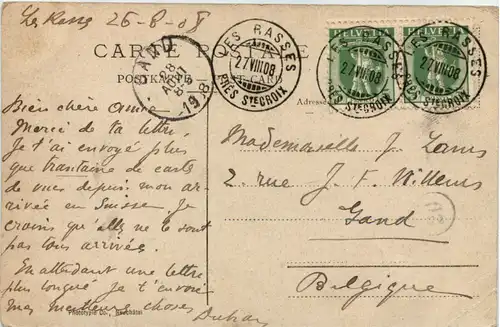 Les Rasses 26-8-08
CARTE POSTALE
POSTKARTE
CARD
Adresse
LES RASSES
27.VIII.08
PRÈS STE CROIX
LES RASSES
27.VIII.08
PRÈS STE CROIX
HELVETIA
HELVETIA
GAND
28
AOUT
1908
Bien chère amie
Merci de ta lettre.
Je t'ai envoyé plus
que trentaine de carte
de vues depuis mon ar
rivée en Suisse. Je
crains qu'elles ne le sont
pas tous arrivées.
En attendant une lettre
plus longue je t'envoie
mes meilleures choses
Mademoiselle J.
2. rue J. F. Willems
Gand
Belgique
Phototypie Co., Neuchâtel